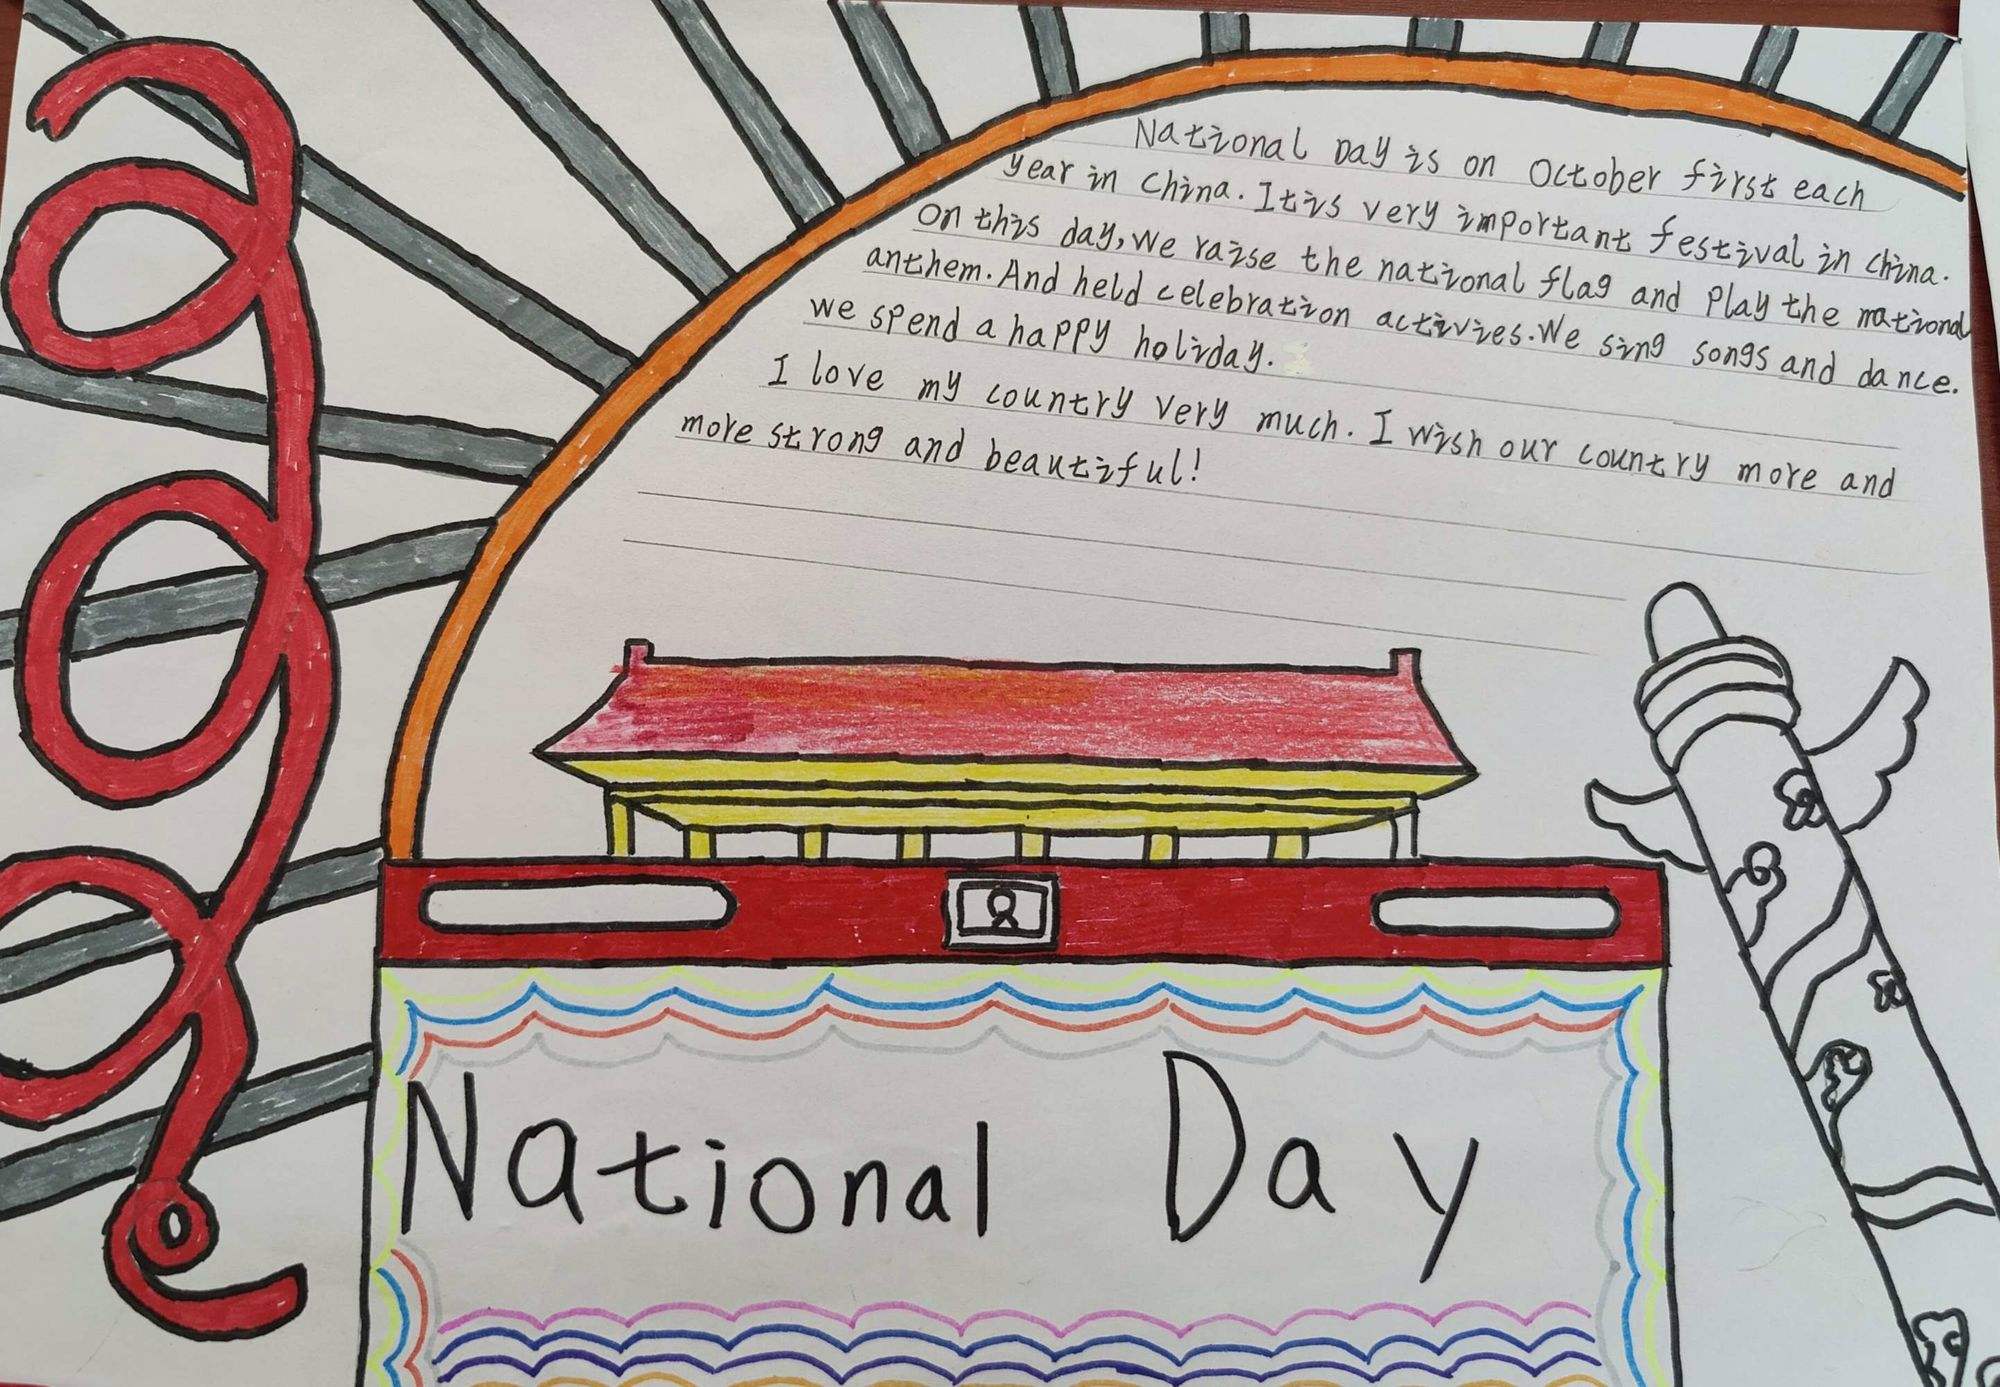 National Day is on October first each
year in China. It is very important festival in china.
On this day, we raise the national flag and play the national
anthem. And held celebration activies. We sing songs and dance.
we spend a happy holiday.
I love my country very much. I wish our country more and
more strong and beautiful!
National Day